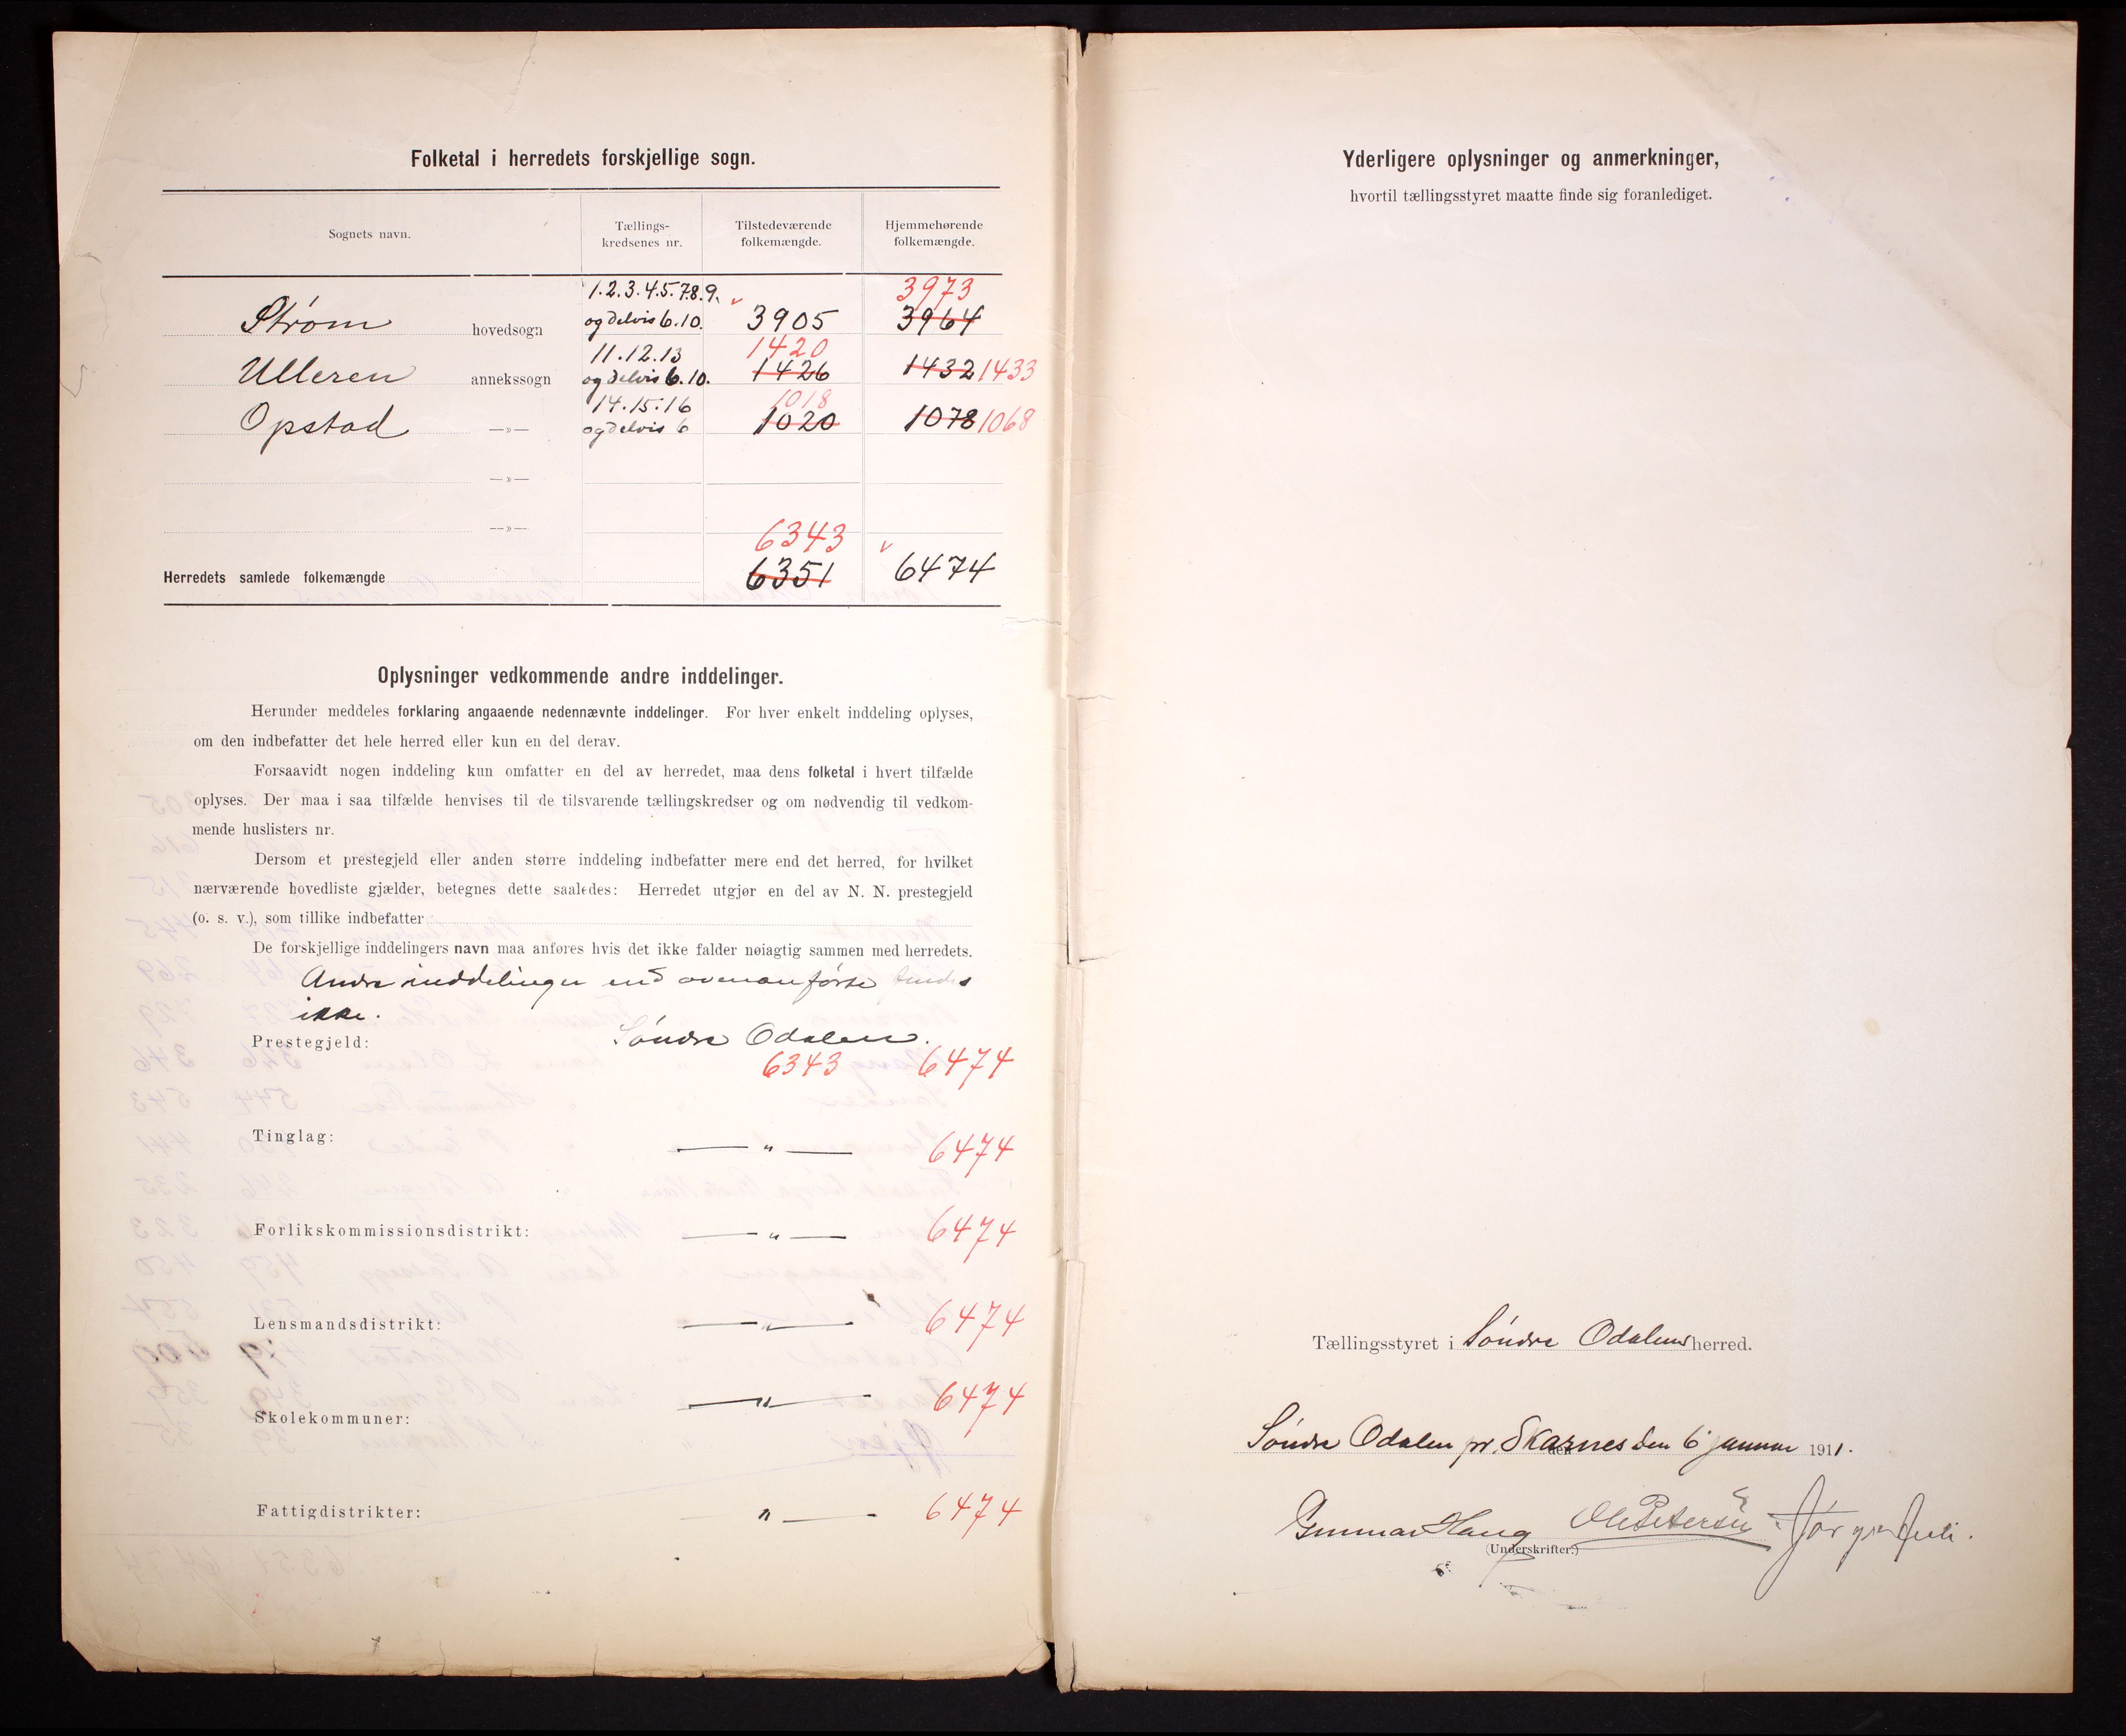 Folketal i herredets forskjellige sogn.
Sognets navn.
Tællings-
kredsenes nr.
Tilstedeværende
folkemængde.
Hjemmehørende
folkemængde.
1.2.3.4.5.7.8.9. 3973
Strøm hovedsogn og delvis 6.10. 3905 3964
11.12.13 1420
Ulleren annekssogn og delvis 6.10. 1426 1432 1433
14.15.16 1018
Opstad —»— og delvis 6 1020 1078 1068
—»—
—»—
6343
Herredets samlede folkemængde 6351 6474
Oplysninger vedkommende andre inddelinger.
Herunder meddeles forklaring angaaende nedennævnte inddelinger. For hver enkelt inddeling oplyses,
om den indbefatter det hele herred eller kun en del derav.
Forsaavidt nogen inddeling kun omfatter en del av herredet, maa dens folketal i hvert tilfælde
oplyses. Der maa i saa tilfælde henvises til de tilsvarende tællingskredser og om nødvendig til vedkom-
mende huslisters nr.
Dersom et prestegjeld eller anden større inddeling indbefatter mere end det herred, for hvilket
nærværende hovedliste gjælder, betegnes dette saaledes: Herredet utgjør en del av N. N. prestegjeld
(o. s. v.), som tillike indbefatter
De forskjellige inddelingers navn maa anføres hvis det ikke falder nøiagtig sammen med herredets.
Andre inddelinger end ovenanførte findes
ikke.
Prestegjeld: Søndre Odalen.
6343 6474
Tinglag: — " — 6474
Forlikskommissionsdistrikt: — " — 6474
Lensmandsdistrikt: — " — 6474
Skolekommuner: — " — 6474
Fattigdistrikter: " — 6474
Yderligere oplysninger og anmerkninger,
hvortil tællingsstyret maatte finde sig foranlediget.
Tællingsstyret i Søndre Odalens herred.
Søndre Odalen pr. Skarnes den 6 januar 1911.
Gunnar Haug Ole Petersen Jørgen
(Underskrifter:)